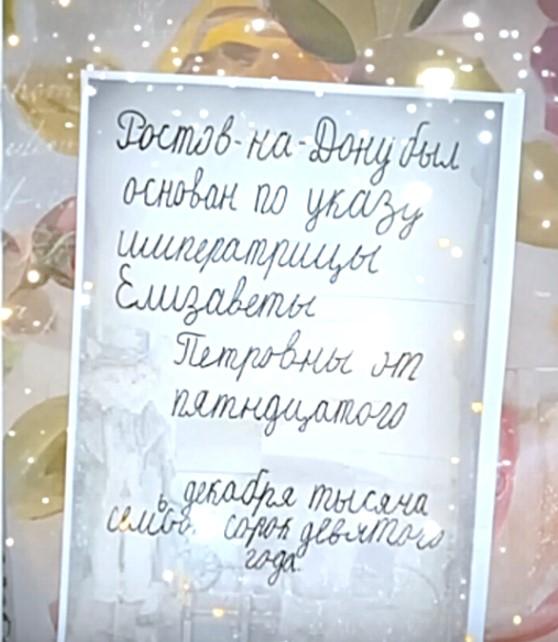 Ростов-на-Дону был
основан по указу
императрицы
Елизаветы
Петровны от
пятндцатого
декабря тысяча
сорок девятого
года.